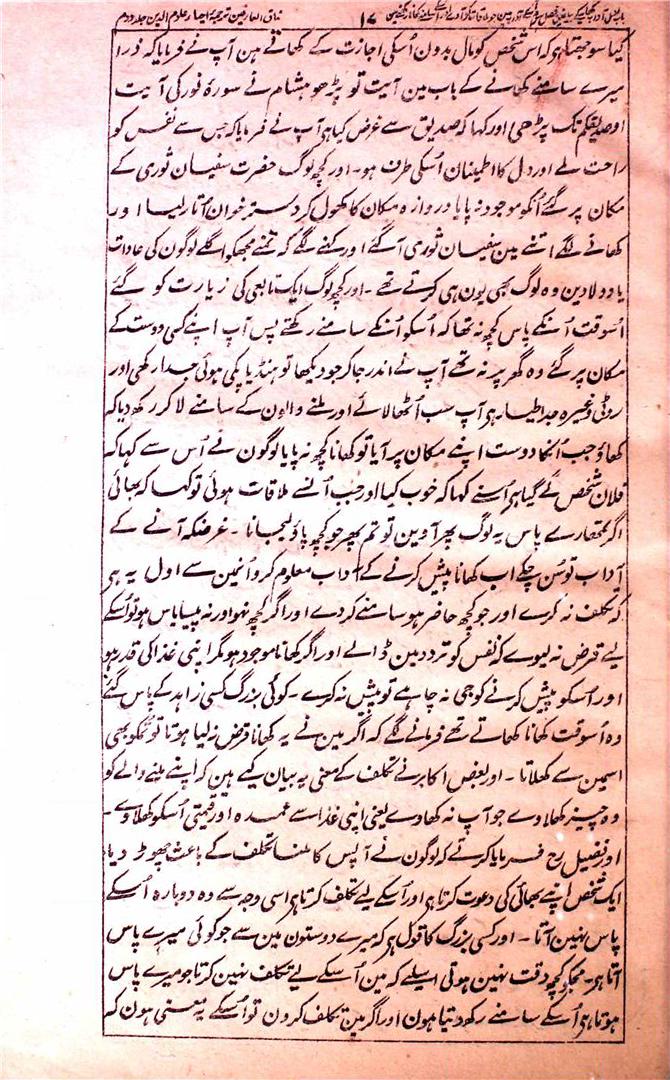 مذاق العارفین ترجمہ احیاء علوم الدین جلد دوم
۱۷
کیا سوجھتا ہی کہ اس شخص کو مال بدون اُسکی اجازت کے کھاتے ہین آپ نے فرمایا کہ ذرا
میرے سامنے کھانے کے باب مین آیت تو پڑھو ہشام نے سورۂ نور کی آیت
اوصدیقکم تک پڑھی اور کہا کہ صدیق سے غرض کیا ہی آپ نے فرمایا کہ جس سے نفس کو
راحت ملے اور دل کا اطمینان اُسکی طرف ہو۔ اور کچھ لوگ حضرت سفیان ثوری کے
مکان پر گئے اُنکو موجود نہ پایا دروازہ مکان کا کھول کر دسترخوان اُتار لیا اور
کھانے لگے اتنے مین سفیان ثوری آگئے اور کہنے لگے کہ تمنے مجھکو اگلے لوگون کی عادات
یاد دلادین وہ لوگ بھی یون ہی کرتے تھے۔ اور کچھ لوگ ایک تابعی کی زیارت کو گئے
اُسوقت اُنکے پاس کچھ نہ تھا کہ اُسکو اُنکے سامنے رکھتے پس آپ اپنے کسی دوست کے
مکان پر گئے وہ گھر پر نہ تھے آپ نے اندر جاکر جو دیکھا تو ہنڈیا پکی ہوئی جدا رکھی اور
روٹی وغیرہ جدا طیار ہی آپ سب اُٹھا لائے اور ملنے والون کے سامنے لاکر رکھ دیا کہ
کھاؤ جب اُنکا دوست اپنے مکان پر آیا تو کھانا کچھ نہ پایا لوگون نے اُس سے کہا کہ
فلان شخص لے گیا ہی اُسنے کہا کہ خوب کیا اور جب اُنسے ملاقات ہوئی تو کہا کہ بھائی
اگر تمھارے پاس یہ لوگ پھر آوین تو تم پھر جو کچھ پاؤ لیجانا۔ غرضکہ آنے کے
آداب تو سُن چکے اب کھانا پیش کرنے کے آداب معلوم کرو اُنمین سے اول یہ ہی
کہ تکلف نہ کرے اور جو کچھ حاضر ہو سامنے کر دے اور اگر کچھ نہو اور نہ پیسا پاس ہو تو اُسکے
لیے قرض نہ لیوے کہ نفس کو تردد مین ڈالے اور اگر کھانا موجود ہو مگر اپنی غذا کی قدر ہو
اور اُسکو پیش کرنے کو جی نہ چاہے تو پیش نہ کرے۔ کوئی بزرگ کسی زاہد کے پاس گئے
وہ اُسوقت کھانا کھاتے تھے فرمانے لگے کہ اگر مین نے یہ کھانا قرض نہ لیا ہوتا تو تمکو بھی
اسمین سے کھلاتا۔ اور بعض اکابر نے تکلف کے معنی یہ بیان کیے ہین کہ اپنے ملنے والے کو
وہ چیز کھلاوے جو آپ نہ کھاوے یعنی اپنی غذا سے عمدہ اور قیمتی اُسکو کھلاوے۔
اور فضیل رح فرمایا کرتے کہ لوگون نے آپس کا ملنا تکلف کے باعث چھوڑ دیا
ایک شخص اپنے بھائی کی دعوت کرتا ہی اور اُسکے لیے تکلف کرتا ہی اسی وجہ سے وہ دوبارہ اُسکے
پاس نہین آتا۔ اور کسی بزرگ کا قول ہی کہ میرے دوستون مین سے جو کوئی میرے پاس
آتا ہی مجھکو کچھ دقت نہین ہوتی اسلیے کہ مین اُسکے لیے تکلف نہین کرتا جو میرے پاس
ہوتا ہی اُسکے سامنے رکھ دیتا ہون اور اگر مین تکلف کرون تو اُسکے یہ معنی ہون کہ